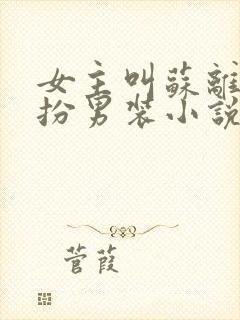 女主叫蘇離
扮男裝小說
菅葭